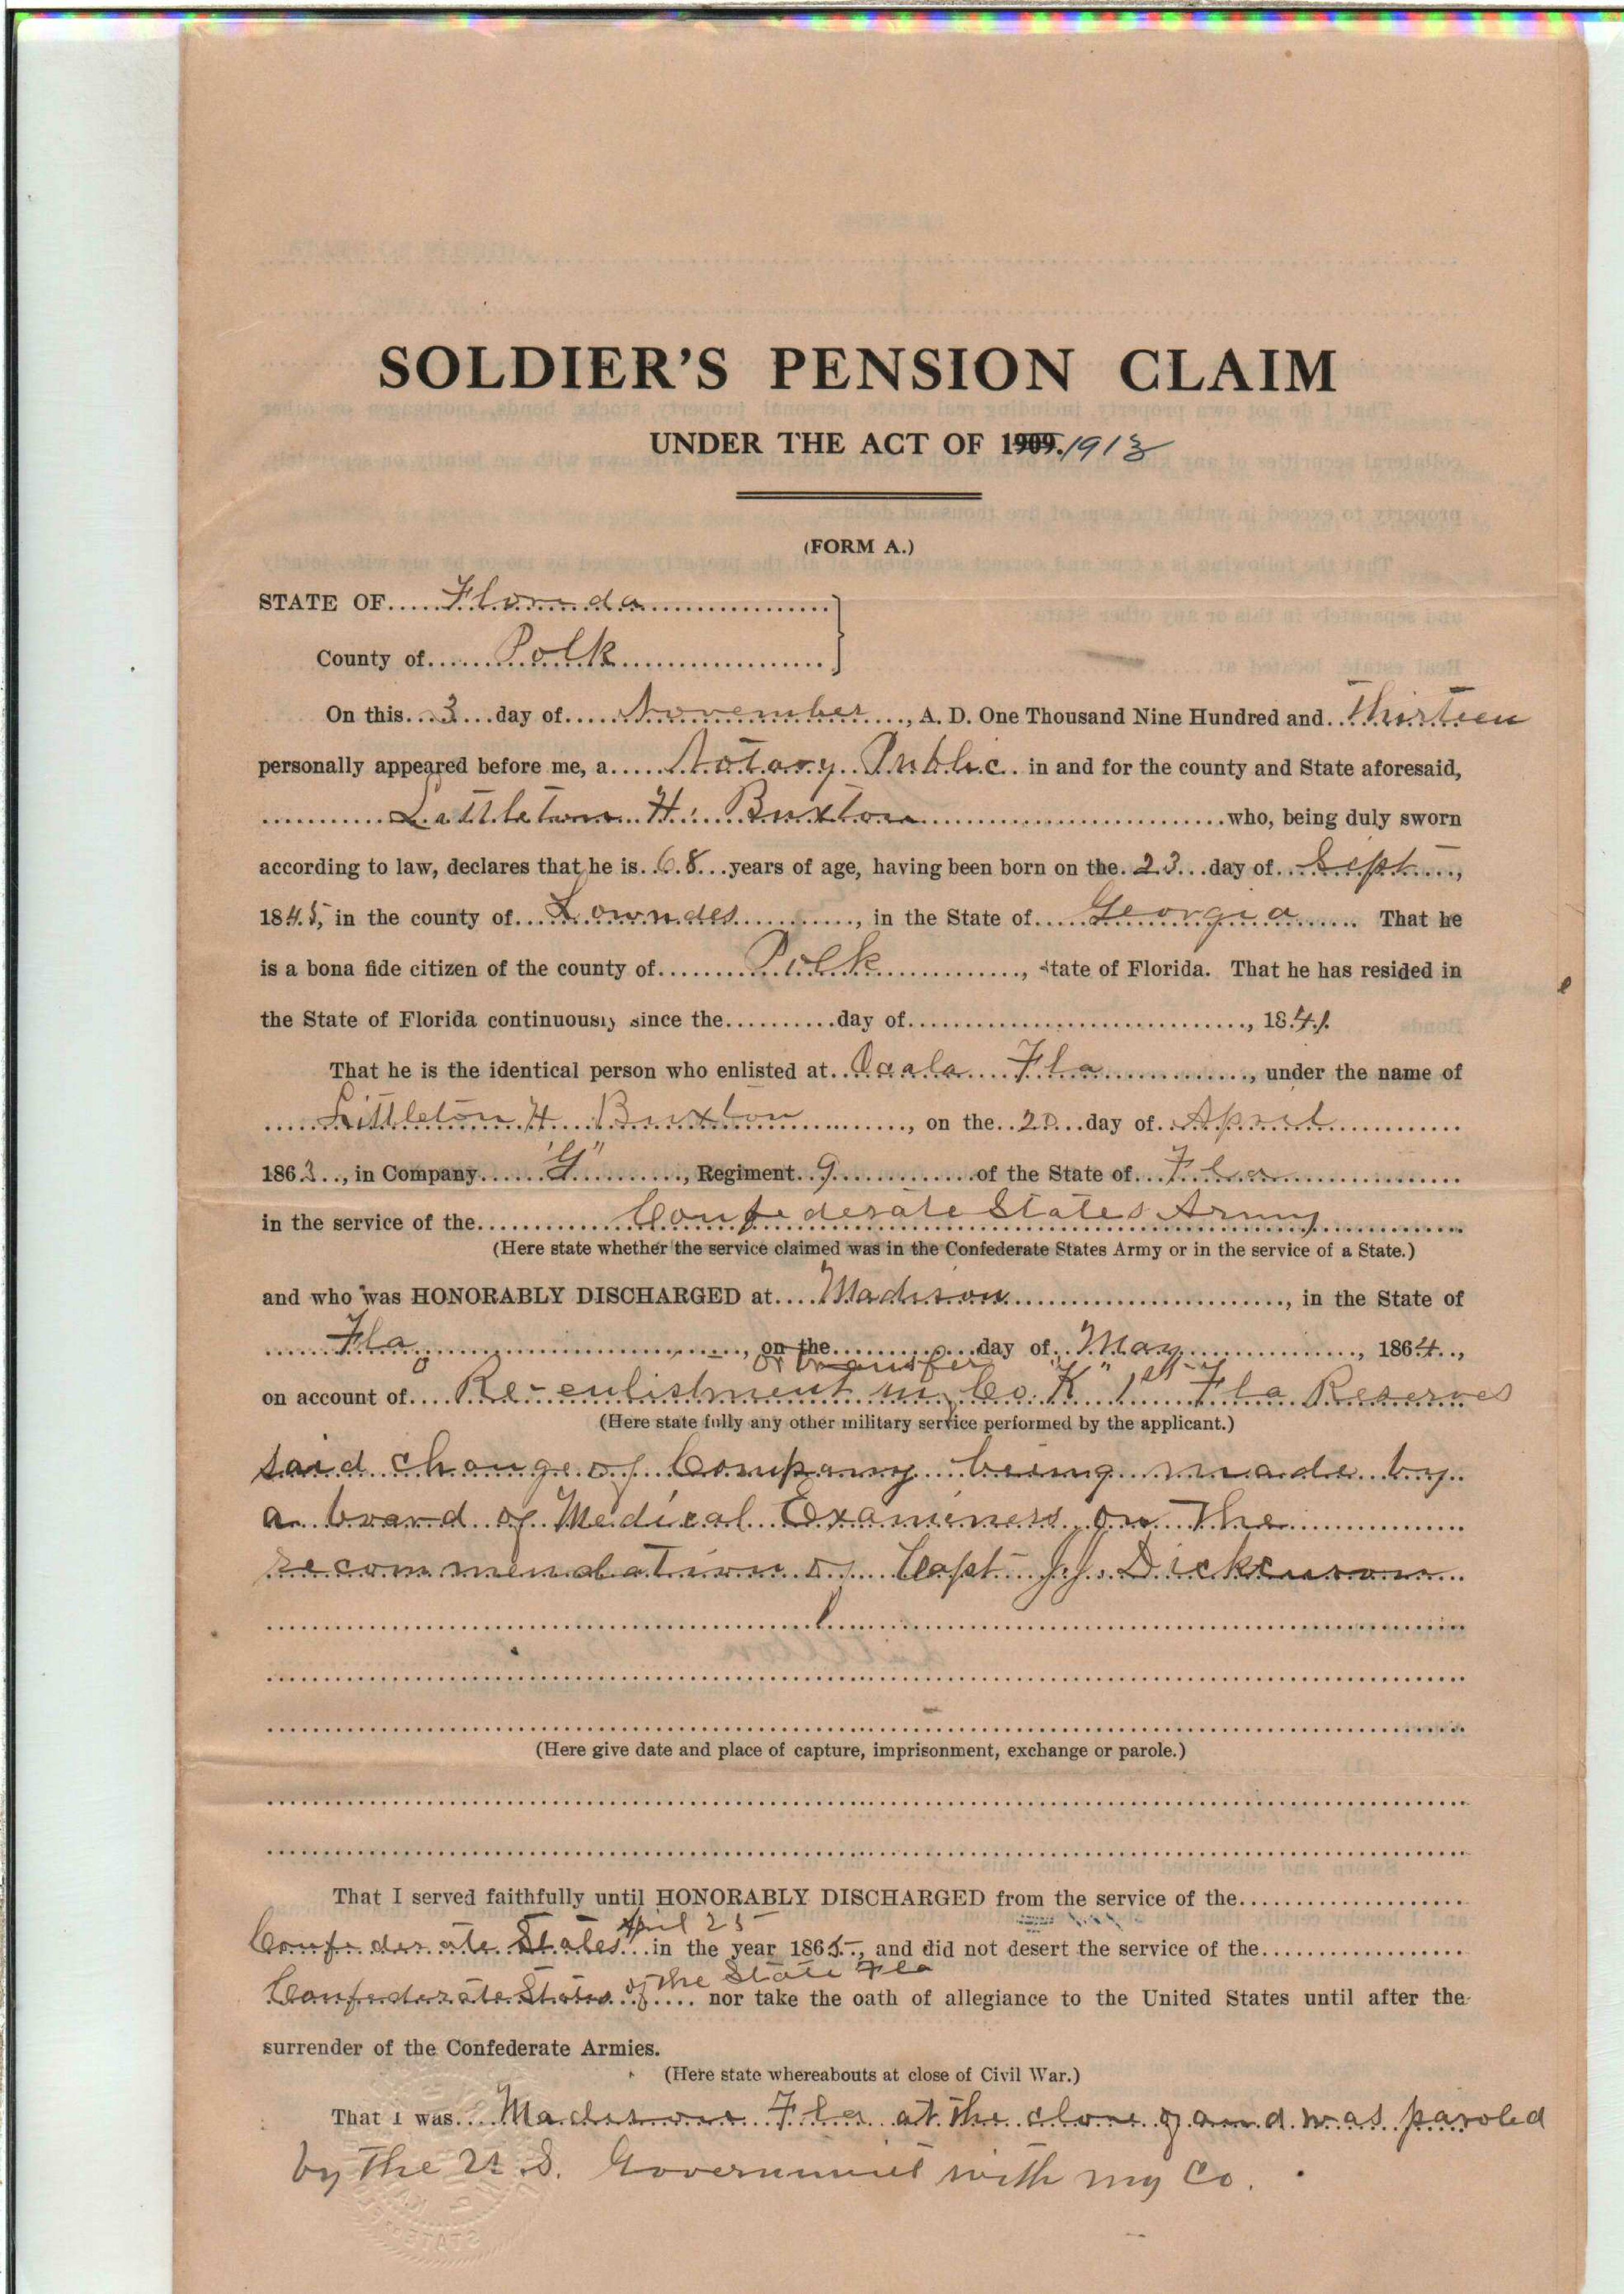 SOLDIER'S PENSION CLAIM
UNDER THE ACT OF 1909. 1913
(FORM A.)
STATE OF Florida
County of Polk
On this 3 day of November, A. D. One Thousand Nine Hundred and Thirteen
personally appeared before me, a Notary Public in and for the county and State aforesaid,
Littleton H. Buxton who, being duly sworn
according to law, declares that he is 68 years of age, having been born on the 23 day of Sept,
1845, in the county of Lowndes, in the State of Georgia That he
is a bona fide citizen of the county of Polk, State of Florida. That he has resided in
the State of Florida continuously since the day of, 18
That he is the identical person who enlisted at Ocala Fla, under the name of
Littleton H. Buxton, on the 20 day of April
1863, in Company "G", Regiment 9 of the State of Fla
in the service of the Confederate States Army
(Here state whether the service claimed was in the Confederate States Army or in the service of a State.)
and who was HONORABLY DISCHARGED at Madison, in the State of
Fla, on the day of May, 1864,
or transfer
on account of Re-enlistment in Co. "K" 1st Fla Reserves
(Here state fully any other military service performed by the applicant.)
said change of Company being made by
a board of Medical Examiners, on the
recommendation of Capt J.J. Dickenson
(Here give date and place of capture, imprisonment, exchange or parole.)
That I served faithfully until HONORABLY DISCHARGED from the service of the
Confederate States April 25 in the year 1865, and did not desert the service of the
Confederate States of the State Fla nor take the oath of allegiance to the United States until after the
surrender of the Confederate Armies.
(Here state whereabouts at close of Civil War.)
That I was Madison Fla at the close of and was paroled
by the U.S. Government with my Co.